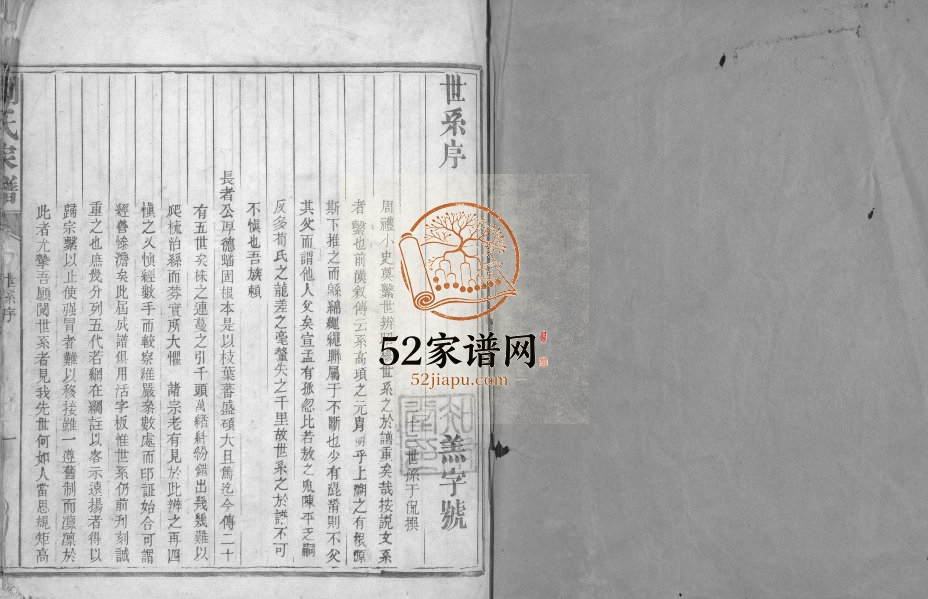 世系序
羔字號
世孫于侃撰
周禮小史奠繫世辨
世系之於譜重矣哉按說文系
者繫也前漢敘傳云系高頊之元胄
乎上溯之有根源
斯下推之而緜綿繩繩聯屬于不斷也少有混淆則不父
其父而謂他人父矣宣孟有孤忽比若敖之鬼陳平乏嗣
反多荀氏之龍差之毫釐失之千里故世系之於譜不可
不慎也吾族賴
長者公厚德蟠固根本是以枝葉蕃盛碩大且篤迄今傳二十
有五世矣株之連蔓之引千頭萬緒紛錯出幾幾難以
爬梳治絲而棼實所大懼
諸宗老有見於此辨之再四
慎之又慎經數手而較察維嚴參數處而印証始合可謂
經營慘澹矣此屆成譜俱用活字板惟世系仍前刊刻誠
重之也庶幾分列五代若綱在綱註以客示遠揚者得以
歸宗繫以止使强冒者難以移接雖一遵舊制而凛凛於
此者尤摯吾願閱世系者見我先世何如人當思規矩高
氏宗譜
世系序
一
52家谱网
52jiapu.com